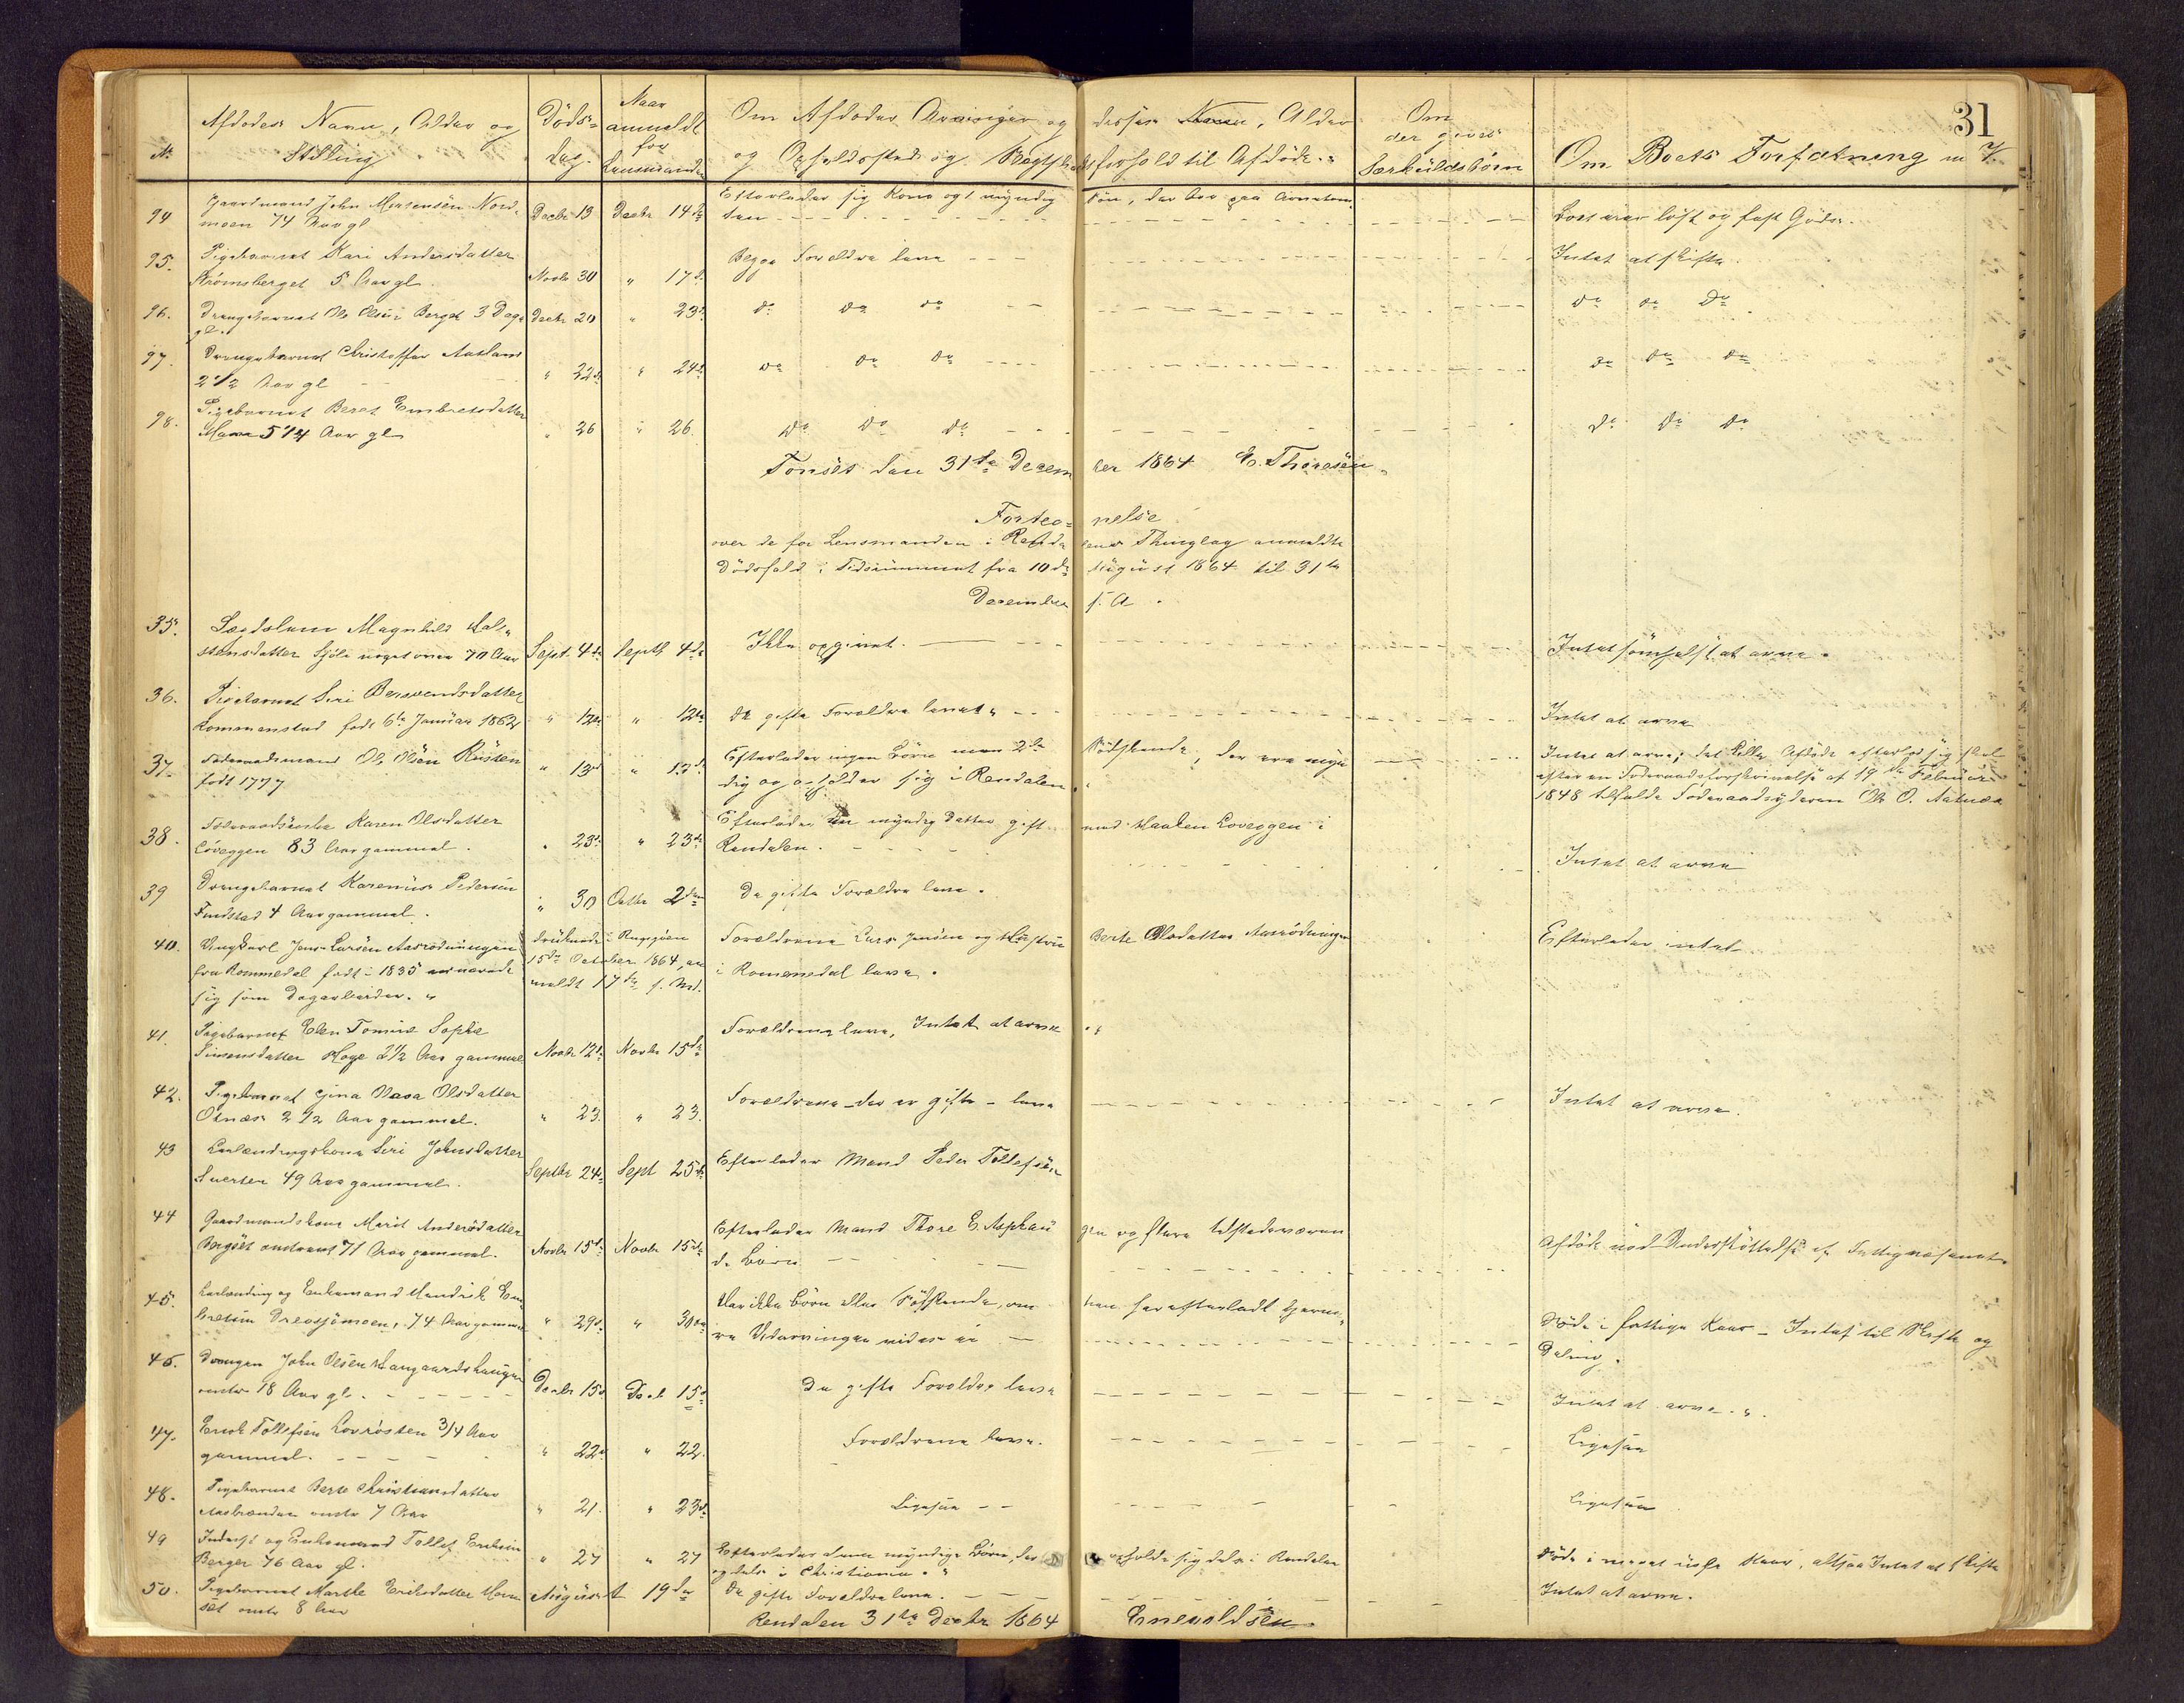 31
No
Afdødes Navn, Alder og
Stilling
Døds-
dag.
Naar
anmeldt
for
Lensmanden
Om Afdødes Arvinger og disses Navne, Alder
og Opholdssted og Slægtskabsforhold til Afdøde.
Om
der gives
Særkuldsbørn
Om Boets Forfatning m. V.
94 Gaardmand John Mortensen Nord-
moen 74 Aar gl Decbr 13 Decbr 14de
Efterlader sig Kone og 1 myndig Søn, der bor paa Arvetom-
ten
Boet eier løst og fast Gods.
95. Pigebarnet Kari Andersdatter
Strømsberget 5 Aar gl. Novbr 30 " 17de
Begge Forældre leve
Intet at skifte.
96. Drengebarnet Ole Olsen Berget 3 Dage
gl. Decbr 20 " 23de do do do
do do do
97. Drengebarnet Christoffer Aasland
2 1/2 Aar gl " 22de " 24de do do do
do do do
98. Pigebarnet Beret Embretsdatter
Moen 5 1/4 Aar gl " 26 " 26. do do do
do do do
Tønset den 31te December 1864 E. Thoresen.
Forteg- nelse
over de for Lensmanden i Rendalens Thinglag anmeldte
Dødsfald i Tidsrummet fra 10de August 1864 til 31te
December s. A.
35. Lægdslem Magnhild Hal-
stensdatter Sjøli noget over 70 Aar Sept. 4de Septb 4de
Ikke opgivet.
Intet somhelst at arve.
36. Pigebarnet Siri Bersvendsdatter
Kommenstad født 6te Januar 1862 " 12te " 12te
De gifte Forældre levet
Intet at arve
37. Føderaadsmand Ole Olsen Rusten
født 1777 " 13de " 13de
Efterlader ingen Børn men 2de Sødskende, der ere myn-
dig og opholder sig i Rendalen.
Intet at arve; det Lille Afdøde efterlod sig skal
efter en Føderaadsforskrivelse af 19de Februar
1848 tilfalde Føderaadsyderen Ole O.
38. Føderaadsenke Karen Olsdatter
Løveggen 83 Aar gammel. " 23de " 23de
Efterlader en myndig Datter gift med Haaken Løveggen i
Rendalen.
Intet at arve
39 Drengebarnet Karenius Pedersen
Finstad 4 Aar gammel. " 30 Octbr 2den
De gifte Forældre leve.
40. Ungkarl Jens Larsen Aasrødningen
fra Rommedal født i 1835 ernærede
sig som Dagarbeider.
druknede i
15de October 1864, an-
meldt 17de s. Md.
Forældrene Lars Jensen og Hustru Berte Olsdatter Aasrødningen
i Romenedal leve.
Efterlader intet
41. Pigebarnet Elen Tomine Sophie
Simensdatter Hoge 2 1/2 Aar gammel Novbr 12te Novbr 15de
Forældrene leve, Intet at arve
42. Pigebarnet Gina Olsdatter
Otnæs 2 1/2 Aar gammel. " 23. " 23.
Forældrene - der er gifte - leve
Intet at arve.
43 Leilændingskone Siri Johnsdatter
49 Aar gammel. Septbr 24de Sept 25de
Efterlader Mand Peder Tollefsen
44 Gaardmandskone Marit Andersdatter
Bergset omtrent 71 Aar gammel. Novbr 15de Novbr 15de
Efterlader Mand Thore E. Asphau- gen og flere tilstedeværen-
de Børn
Afdøde nød Understøttelse af Fattigvæsenet.
45. Leilænding og Enkemand Hendrik Em-
bretsen Drevsjømoen, 74 Aar gammel " 29de " 30te
Har ikke Børn eller Sødskende, om han har efterladt fjerne-
re Udarvinger vides ei
Døde i fattige Kaar - Intet til Skifte og
Deling.
46. Drengen John Olsen Haugaardshaugen
omtr 18 Aar gl. Decbr 15de Decb 15de
De gifte Forældre leve
Intet at arve.
47. Erik Tollefsen Lovrøsten 3/4 Aar
gammel. " 22de " 22.
Forældrene leve.
Ligesaa
48. Pigebarnet Berte Christiansdatter
Aasbrænden omtr 7 Aar " 21. " 23de
Ligesaa
Ligesaa
49 Inderst og Enkemand Tollef Eriksen
Berger 76 Aar gl. " 27 " 27
Efterlader flere myndige Børn, der opholde sig dels i Rendalen
og dels i Christiania.
Døde i meget usle Kaar, altsaa Intet at skifte
50. Pigebarnet Marthe Eriksdatter Horn-
set omtr 8 Aar August 19de
De gifte Forældre leve.
Intet at arve.
Rendalen 31te Decbr 1864 Enevoldsen